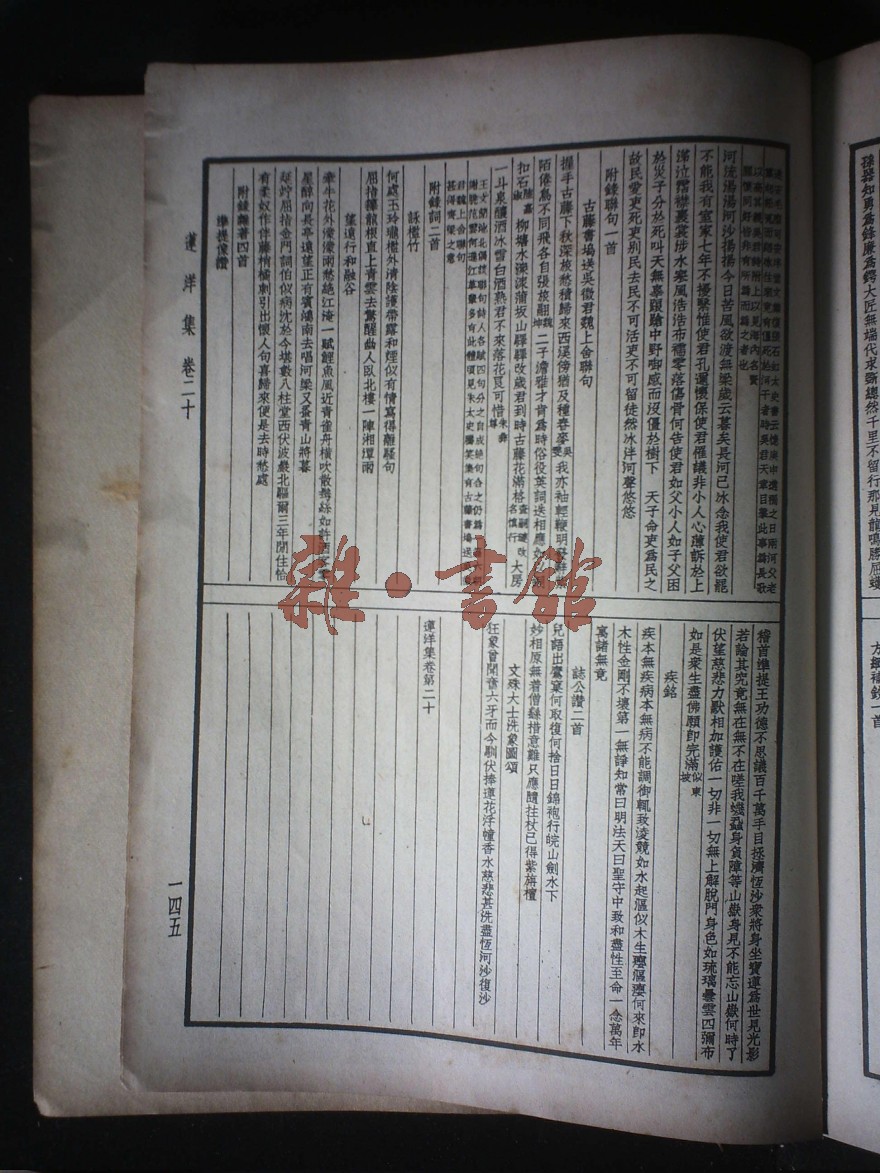 河流湯湯河沙揚揚今日苦風欲渡無梁歲云暮矣長河已冰念我使君欲罷
不能我有室家七年不擾繄惟使君孔邇懷保使君罹議非小人心薄訴於上
滿泣霑襟褰裳涉水寒風浩浩布襦零落傷骨何告使君如父小人如子父困
於災子分於死叫天無辜頭搶中野啣感而沒僵於樹下 天子命吏為民之
故民愛吏死吏別民去民不可活吏不可留徒然冰泮河聲悠悠
附錄聯句一首
古藤書塢送吳徵君魏上舍聯句
握手古藤下秋深梭愁積歸來西溪傍猶及種春麥吳雯我亦袖輕鞭明發辭
陌倦鳥不同飛各自張梭翮魏坤二子澹雅才肯為時俗役英詞迭相應如
扣石陸嘉淑柳塘水深深蒲坂山驛驛改歲君到時古藤花滿格查嗣璉改名慎行大房
一斗泉釀酒冰雪白酒熟君不來落花良可惜朱彝尊
附錄詞二首
詠檻竹
何處玉玲瓏檻外清陰護帶露和煙似有情寫得離騷句
屈指籜龍根直上青雲去驚醒幽人臥北樓一陣湘潭雨
望遠行和融谷
牽牛花外濛濛雨愁絕江淹一賦鯉魚風近青雀舟橫吹散鬢絲如許
星醉向長亭遠望正有賓鴻南去唱河梁又蚤青山將暮
延竚屈指金門詞伯似病沈於今堪數八柱堂西伏波巖北驅爾三年閒住怕
有柔奴作伴藤梢橘刺引出懷人句喜歸來便是去時愁處
附錄雜著四首
準提像讚
稽首準提王功德不思議百千萬手目拯濟恆沙衆將身坐寶蓮為世見光影
若論其究竟無在無不在嗟我蟣蝨身負障等山嶽身見不能忘山嶽何時了
伏望慈悲力獸相加護佑一切非一切無上解脫門身色如琉璃曇雲四彌布
如是衆生盡佛願即完滿似東坡
疾銘
疾本無疾病本無病不能調御輒致淩競如水起漚似木生癭漚癭何來即水
木性金剛不壞第一無諍知常曰明法天曰聖守中致和盡性至命一念萬年
萬諸無竟
誌公讚二首
兒語出鷹窠何取復何捨日日錦袍行皖山劍水下
妙相原無着僧繇措意難只應隨拄杖已得紫旃檀
文殊大士洗象圖頌
狂象曾聞奮六牙而今馴伏捧蓮花浮幢香水慈悲甚洗盡恆河沙復沙
蓮洋集卷第二十
蓮洋集 卷二十
一四五
雜·書館